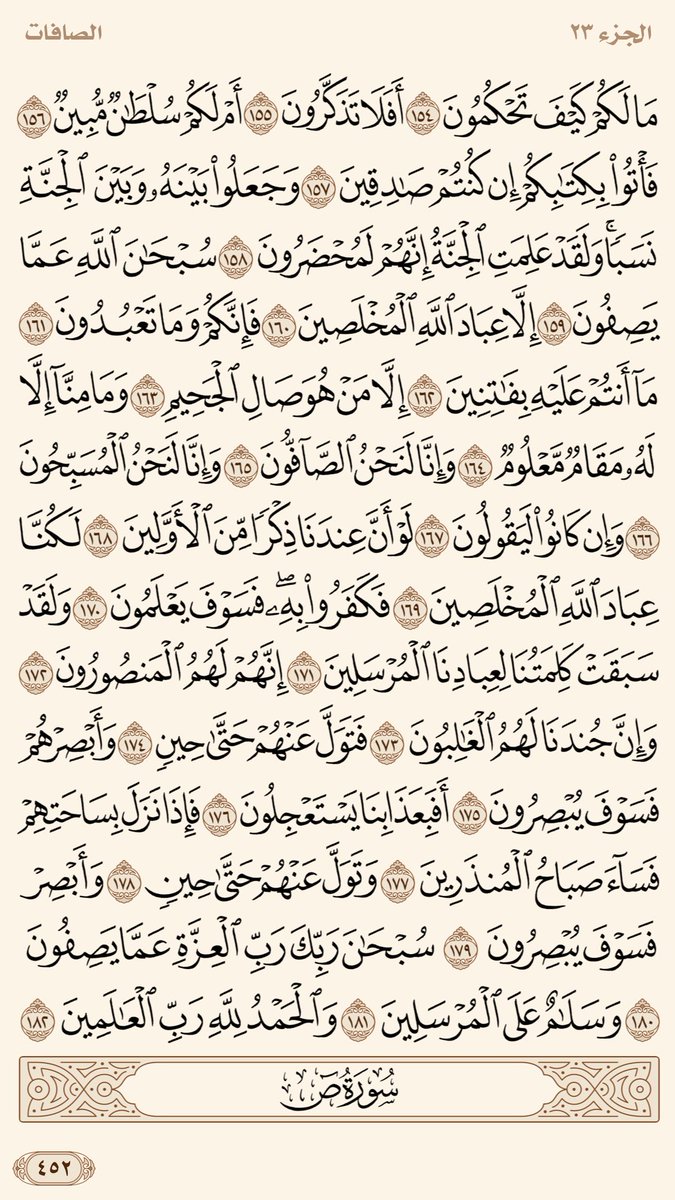 الجزء ٢٣
الصافات
مَا لَكُمْ كَيْفَ تَحْكُمُونَ ١٥٤ أَفَلَا تَذَكَّرُونَ ١٥٥ أَمْ لَكُمْ سُلْطَٰنٌ مُّبِينٌ ١٥٦
فَأْتُوا۟ بِكِتَٰبِكُمْ إِن كُنتُمْ صَٰدِقِينَ ١٥٧ وَجَعَلُوا۟ بَيْنَهُۥ وَبَيْنَ ٱلْجِنَّةِ
نَسَبًا ۚ وَلَقَدْ عَلِمَتِ ٱلْجِنَّةُ إِنَّهُمْ لَمُحْضَرُونَ ١٥٨ سُبْحَٰنَ ٱللَّهِ عَمَّا
يَصِفُونَ ١٥٩ إِلَّا عِبَادَ ٱللَّهِ ٱلْمُخْلَصِينَ ١٦٠ فَإِنَّكُمْ وَمَا تَعْبُدُونَ ١٦١
مَآ أَنتُمْ عَلَيْهِ بِفَٰتِنِينَ ١٦٢ إِلَّا مَنْ هُوَ صَالِ ٱلْجَحِيمِ ١٦٣ وَمَا مِنَّآ إِلَّا
لَهُۥ مَقَامٌ مَّعْلُومٌ ١٦٤ وَإِنَّا لَنَحْنُ ٱلصَّآفُّونَ ١٦٥ وَإِنَّا لَنَحْنُ ٱلْمُسَبِّحُونَ
١٦٦ وَإِن كَانُوا۟ لَيَقُولُونَ ١٦٧ لَوْ أَنَّ عِندَنَا ذِكْرًا مِّنَ ٱلْأَوَّلِينَ ١٦٨ لَكُنَّا
عِبَادَ ٱللَّهِ ٱلْمُخْلَصِينَ ١٦٩ فَكَفَرُوا۟ بِهِۦ ۖ فَسَوْفَ يَعْلَمُونَ ١٧٠ وَلَقَدْ
سَبَقَتْ كَلِمَتُنَا لِعِبَادِنَا ٱلْمُرْسَلِينَ ١٧١ إِنَّهُمْ لَهُمُ ٱلْمَنصُورُونَ ١٧٢
وَإِنَّ جُندَنَا لَهُمُ ٱلْغَٰلِبُونَ ١٧٣ فَتَوَلَّ عَنْهُمْ حَتَّىٰ حِينٍ ١٧٤ وَأَبْصِرْهُمْ
فَسَوْفَ يُبْصِرُونَ ١٧٥ أَفَبِعَذَابِنَا يَسْتَعْجِلُونَ ١٧٦ فَإِذَا نَزَلَ بِسَاحَتِهِمْ
فَسَآءَ صَبَاحُ ٱلْمُنذَرِينَ ١٧٧ وَتَوَلَّ عَنْهُمْ حَتَّىٰ حِينٍ ١٧٨ وَأَبْصِرْ
فَسَوْفَ يُبْصِرُونَ ١٧٩ سُبْحَٰنَ رَبِّكَ رَبِّ ٱلْعِزَّةِ عَمَّا يَصِفُونَ
١٨٠ وَسَلَٰمٌ عَلَى ٱلْمُرْسَلِينَ ١٨١ وَٱلْحَمْدُ لِلَّهِ رَبِّ ٱلْعَٰلَمِينَ ١٨٢
سُورَةُ صٓ
٤٥٢